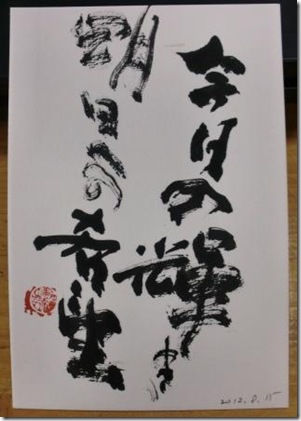 今日の輝き
明日への希望
2012.8.15